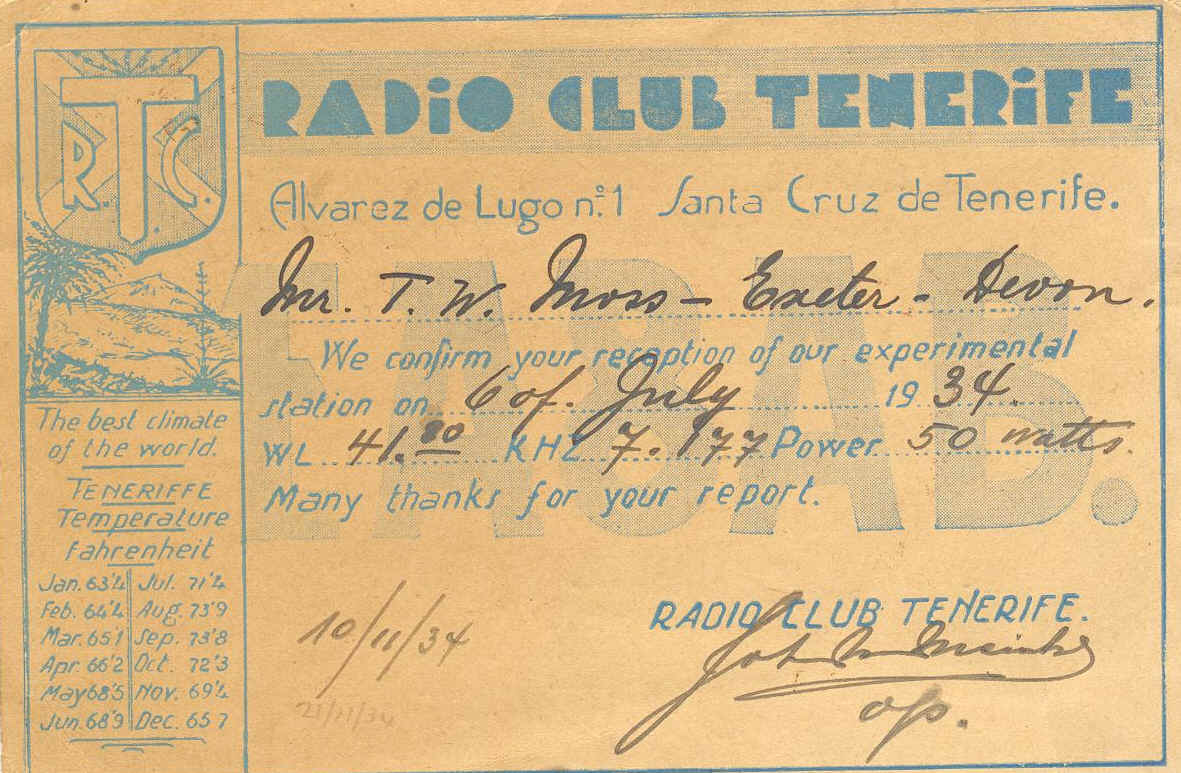 R.T.C.
RADiO CLUB TENERiFE
Alvarez de Lugo n.º 1 Santa Cruz de Tenerife.
EA8AB.
Mr. T. W. Moss - Exeter - Devon.
We confirm your reception of our experimental
station on 6 of. July 1934.
WL 41.80 KHZ 7.177 Power 50 watts.
Many thanks for your report.
RADIO CLUB TENERIFE.
op.
10/11/34
21/11/34
The best climate
of the world.
TENERIFFE
Temperature
fahrenheit
Jan. 63'4 Jul. 71'4
Feb. 64'4 Aug. 73'9
Mar. 65 1 Sep. 73'8
Apr. 66'2 Oct. 72'3
May 68'5 Nov. 69'4
Jun. 68'9 Dec. 65 7